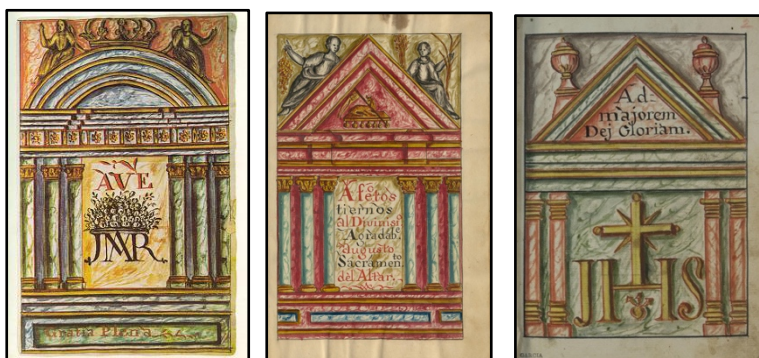 AVE
JMR
Gratia Plena
Afetos
tiernos
al Divinis.º
Agradab.
Augusto
Sacramen.to
del Altar.
Ad
majorem
Dej Gloriam.
JHS